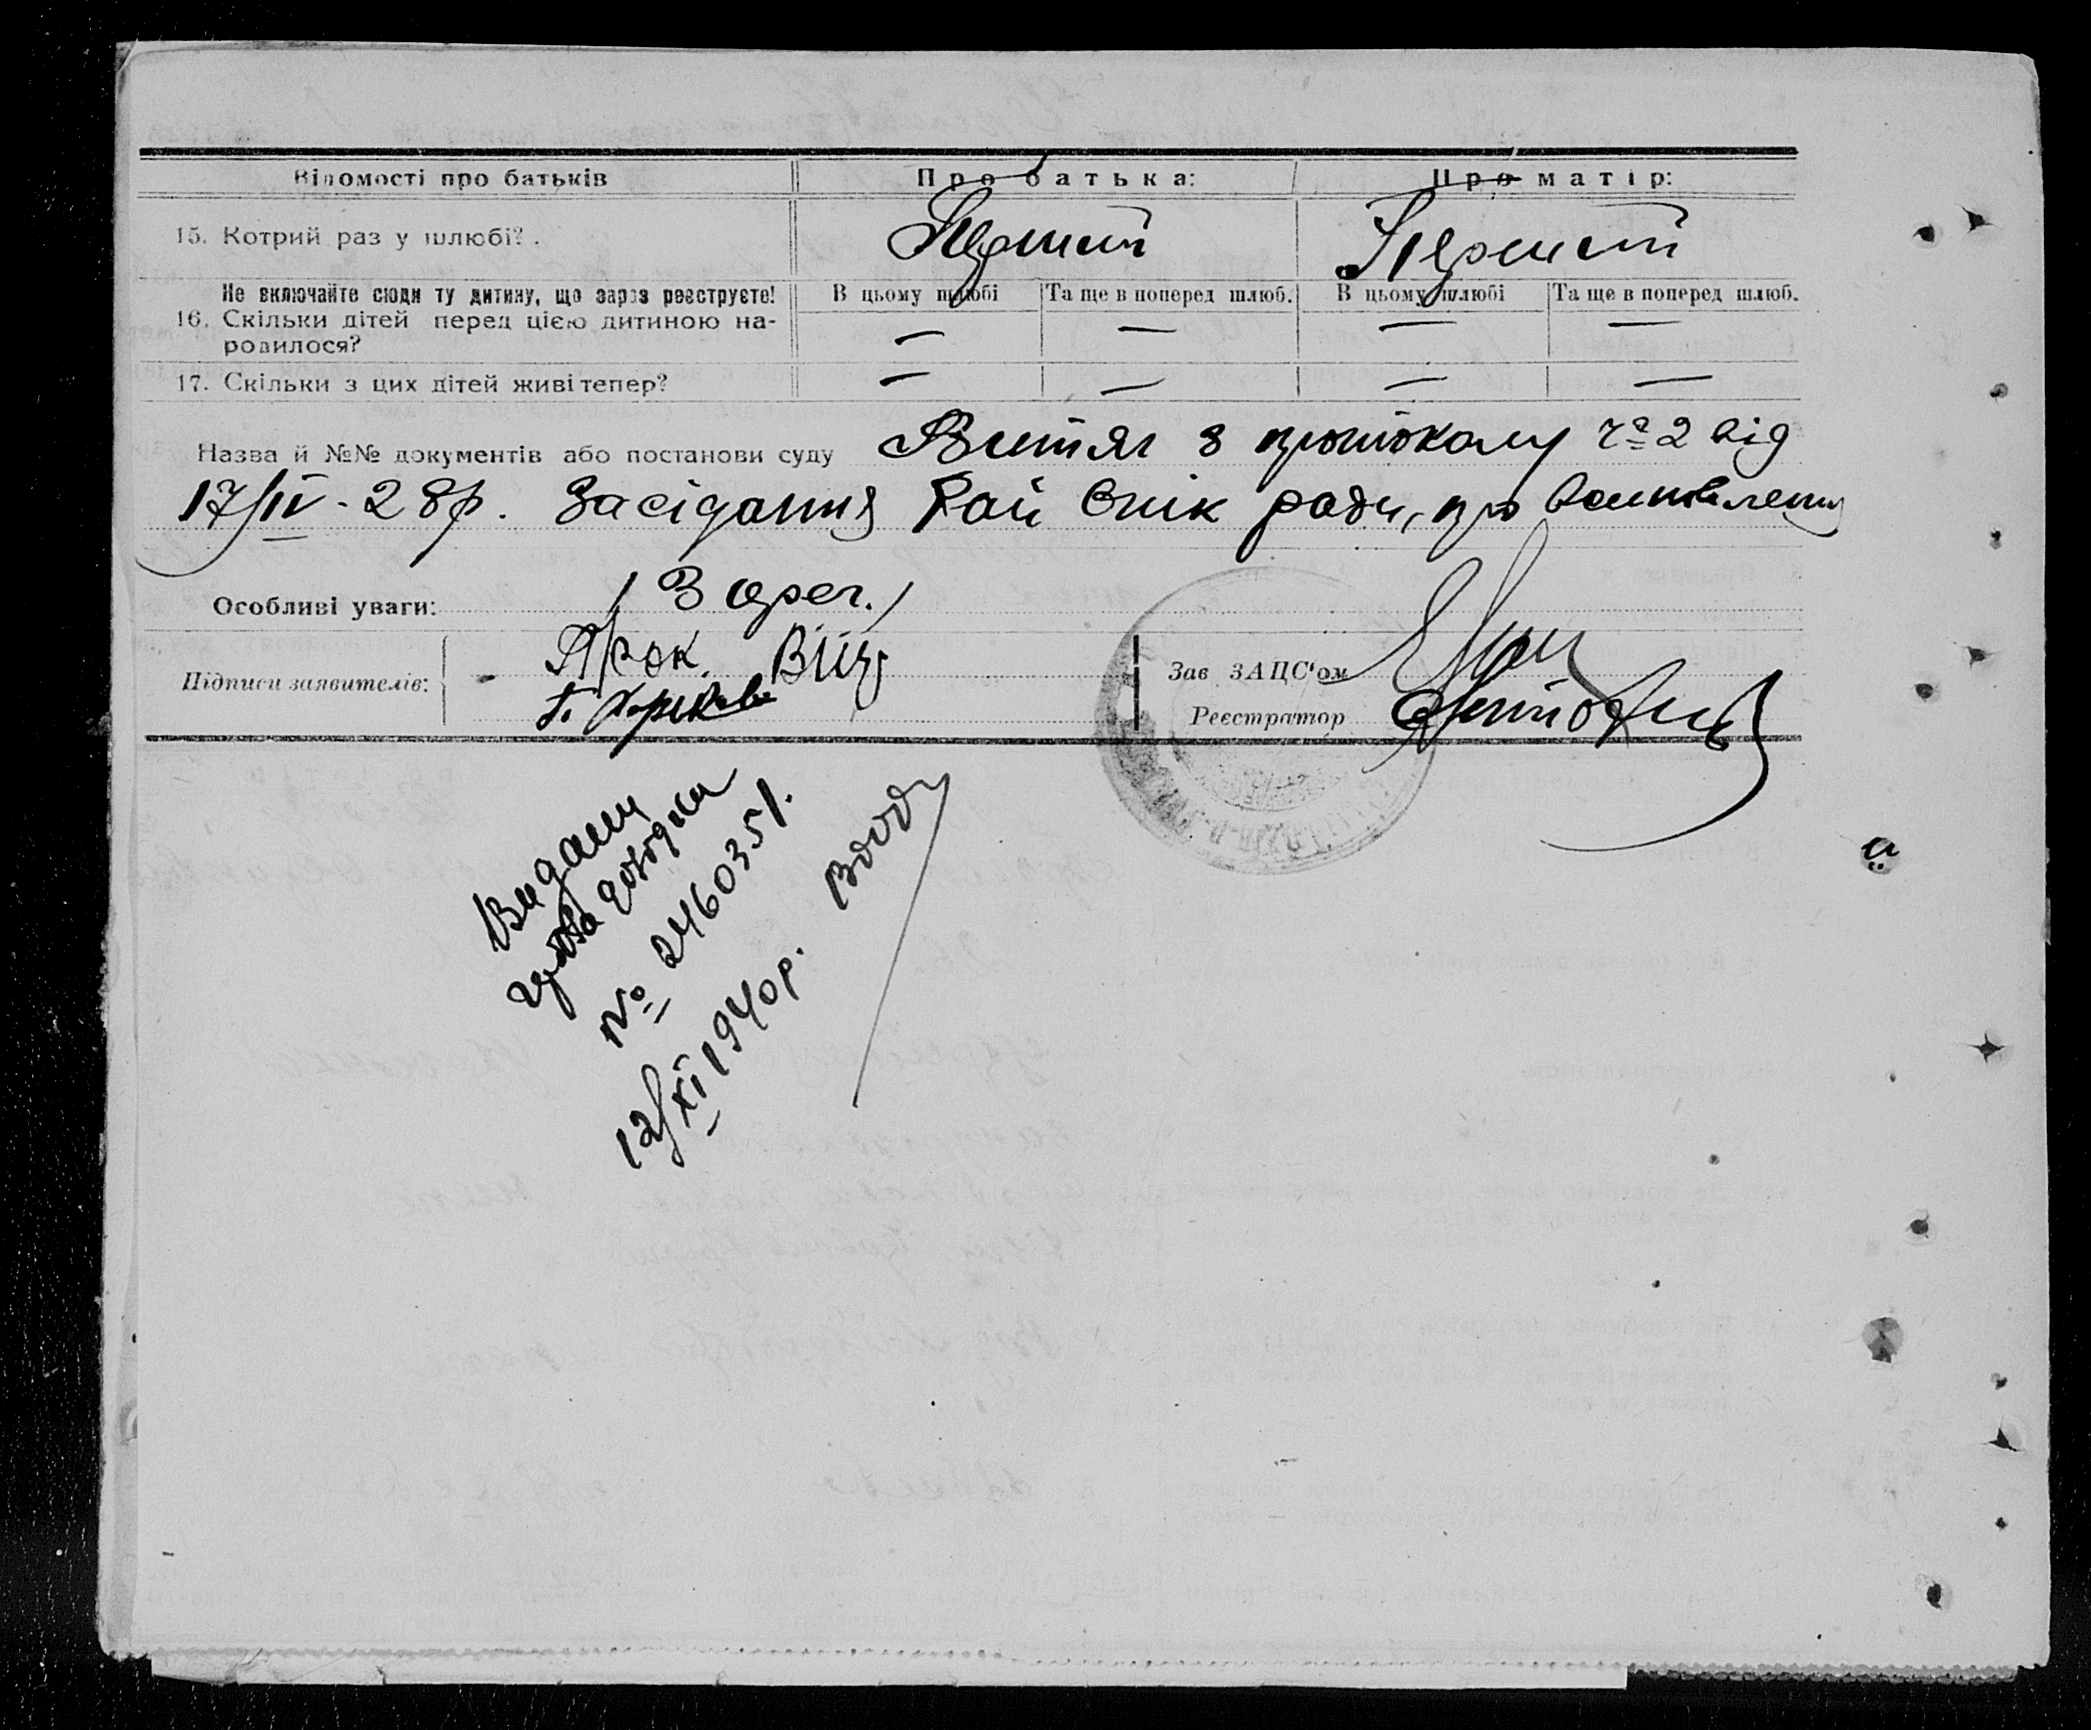 Відомості про батьків Про батька: Про матір:
15. Котрий раз у шлюбі? . Перший Перший
Не включайте сюди ту дитину, що зараз реєструєте! В цьому шлюбі Та ще в поперед шлюб. В цьому шлюбі Та ще в поперед шлюб.
16. Скільки дітей перед цією дитиною на-
родилося? — — — —
17. Скільки з цих дітей живі тепер? — — — —
Назва й №№ документів або постанови суду Витяг з протоколу ч 2 від
17/IV - 28р. Засідання Рай Опік ради, про
Особливі уваги:
Підписи заявителів:
Зав ЗАЦС'ом
Реєстратор
Видани
№ 246035/.
12/XI 1940р.